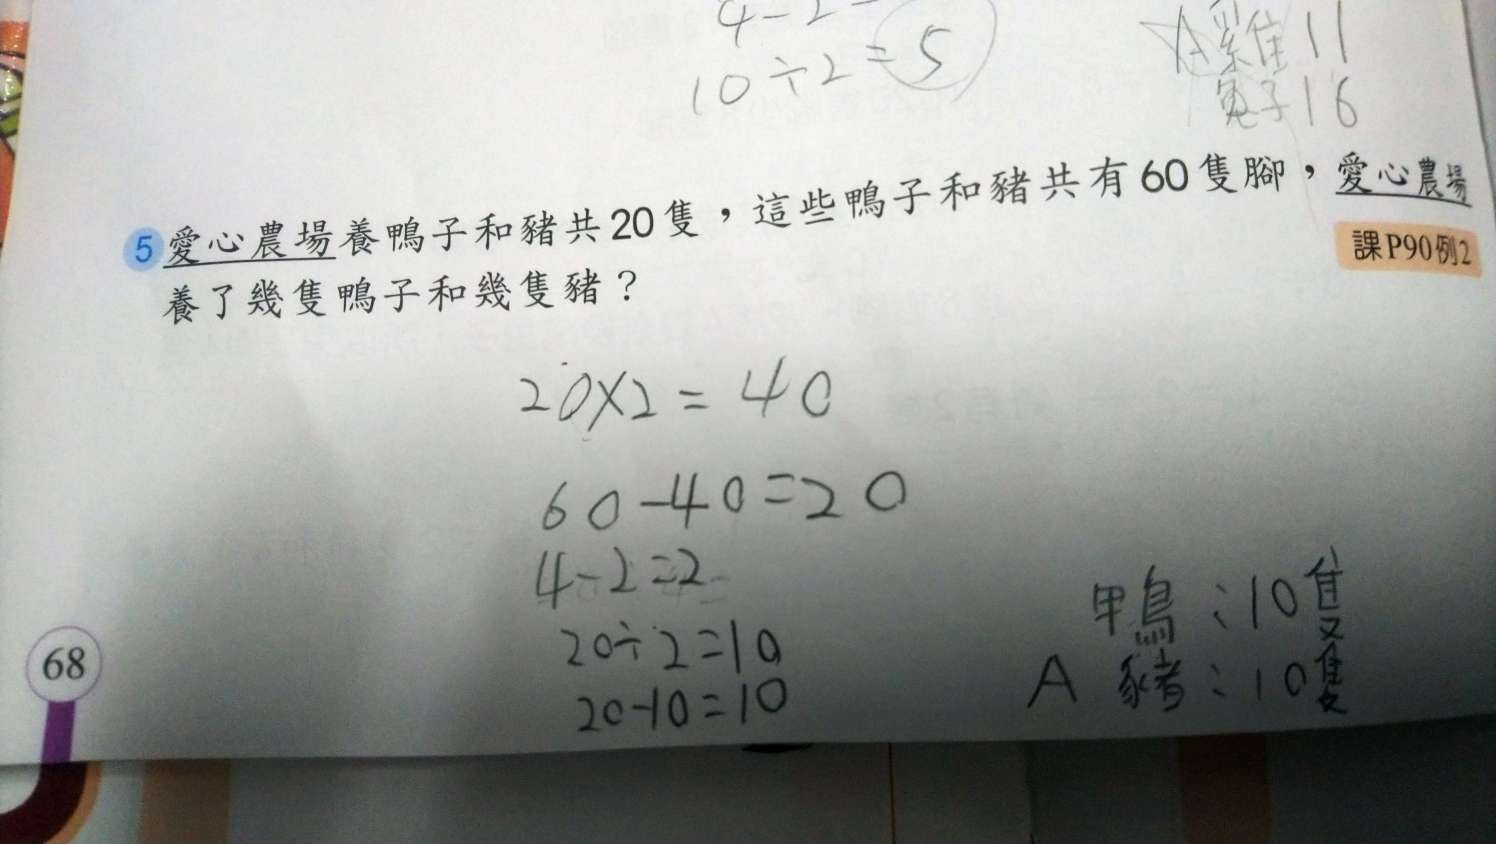 4-2=
10÷2=5
A雞11
兔子16
5 愛心農場養鴨子和豬共20隻，這些鴨子和豬共有60隻腳，愛心農場
課P90例2
養了幾隻鴨子和幾隻豬？
20×2=40
60-40=20
4-2=2
20÷2=10
20-10=10
鴨：10隻
A 豬：10隻
68